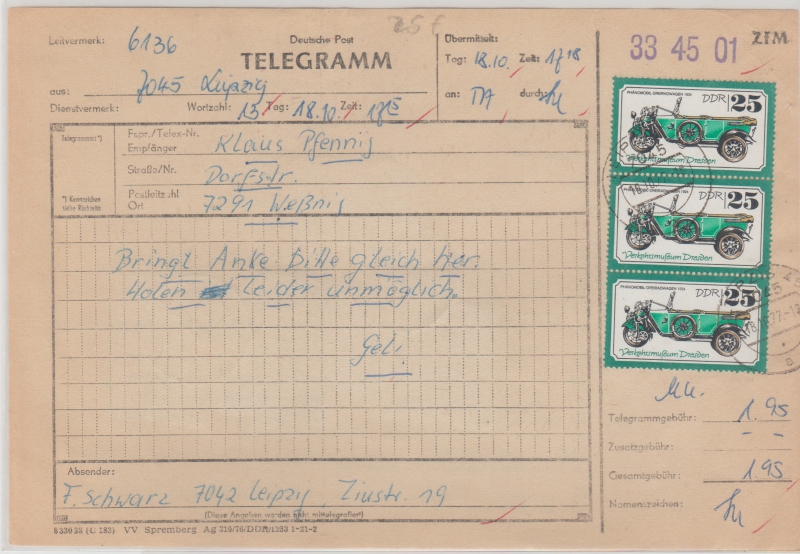 25 f
Leitvermerk: 6136
Deutsche Post
TELEGRAMM
Übermittelt:
Tag: 18.10. Zeit: 17 18
an: TA durch:
33 45 01
ZTM
aus: 7045 Leipzig
Dienstvermerk: Wortzahl: 15 Tag: 18.10. Zeit: 17 15
Telegrammart*)
*) Kennzeichen
siehe Rückseite
Fspr./Telex-Nr.
Empfänger Klaus Pfennig
Straße/Nr. Dorfstr.
Postleitzahl
Ort 7291 Weßnig
Bringt Anke bitte gleich her.
Holen leider unmöglich.
Geli.
Absender:
F. Schwarz 7042 Leipzig, 19
(Diese Angaben werden nicht mittelegrafiert)
VV Spremberg Ag 310/76/DDR/1283 1-21-2
PHÄNOMOBIL-DREIRADWAGEN 1924
DDR 25
Verkehrsmuseum Dresden
PHÄNOMOBIL-DREIRADWAGEN 1924
DDR 25
Verkehrsmuseum Dresden
PHÄNOMOBIL-DREIRADWAGEN 1924
DDR 25
Verkehrsmuseum Dresden
Telegrammgebühr: 1.95
Zusatzgebühr: - -
Gesamtgebühr: 1.95
Namenszeichen: